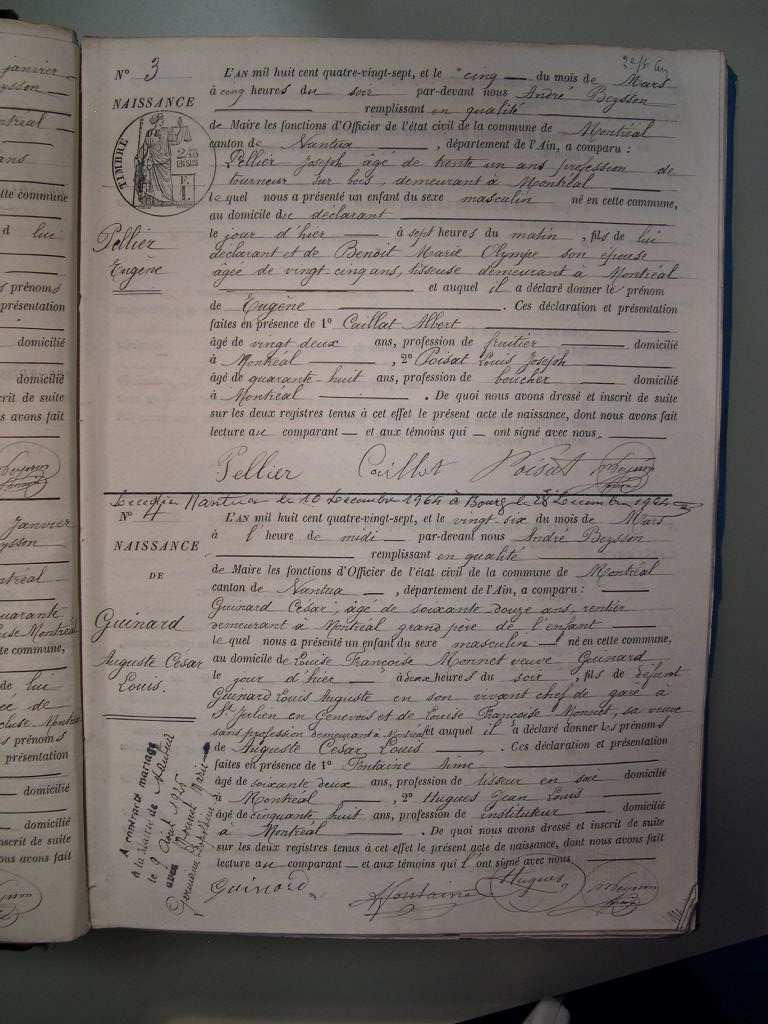 janvier
Beysson
Montréal
ans
cette commune
d lui
s prénoms
présentation
domicilié
domicilié
crit de suite
s avons fait
N° 3
L'AN mil huit cent quatre-vingt-sept, et le cinq du mois de Mars
NAISSANCE
à cinq heures du soir par-devant nous André Beysson
remplissant en qualité
de Maire les fonctions d'Officier de l'état civil de la commune de Montréal
canton de Nantua, département de l'Ain, a comparu :
TIMBRE
Pellier Joseph âgé de trente un ans profession de
tourneur sur bois, demeurant à Montréal
lequel nous a présenté un enfant du sexe masculin né en cette commune,
au domicile du déclarant
Pellier
Eugène
le jour d'hier à sept heures du matin, fils de lui
déclarant et de Benoît Marie Olympe son épouse
âgée de vingt-cinq ans, tisseuse demeurant à Montréal
et auquel il a déclaré donner le prénom
de Eugène. Ces déclaration et présentation
faites en présence de 1° Caillat Albert
âgé de vingt deux ans, profession de fruitier domicilié
à Montréal, 2° Poisat Louis Joseph
âgé de quarante-huit ans, profession de boucher domicilié
à Montréal. De quoi nous avons dressé et inscrit de suite
sur les deux registres tenus à cet effet le présent acte de naissance, dont nous avons fait
lecture au comparant et aux témoins qui ont signé avec nous.
Pellier Caillat Poisat Beysson
Nantua le 10 Décembre 1964 à Bourg le
N° 4
L'AN mil huit cent quatre-vingt-sept, et le vingt-six du mois de Mars
NAISSANCE
DE
à l'heure de midi par-devant nous André Beysson
remplissant en qualité
de Maire les fonctions d'Officier de l'état civil de la commune de Montréal
canton de Nantua, département de l'Ain, a comparu :
Guinard César, âgé de soixante douze ans, rentier
demeurant à Montréal grand père de l'enfant
Guinard
Auguste César
Louis.
lequel nous a présenté un enfant du sexe masculin né en cette commune,
au domicile de Louise Françoise Monnet veuve Guinard
le jour d'hier à deux heures du soir, fils de défunt
Guinard Louis Auguste en son vivant chef de gare à
St Julien en Genevois et de Louise Françoise Monnet, sa veuve
sans profession demeurant à Montréal et auquel il a déclaré donner les prénoms
de Auguste César Louis. Ces déclaration et présentation
faites en présence de 1° Fontaine Aimé
âgé de soixante deux ans, profession de tisseur en soie domicilié
à Montréal, 2° Hugues Jean Louis
âgé de cinquante huit ans, profession de instituteur domicilié
à Montréal. De quoi nous avons dressé et inscrit de suite
sur les deux registres tenus à cet effet le présent acte de naissance, dont nous avons fait
lecture au comparant et aux témoins qui l'ont signé avec nous
A contracté mariage
à la Mairie de
le 9 Août 1925
avec Marie
Germaine
Guinard A Fontaine Hugues Beysson